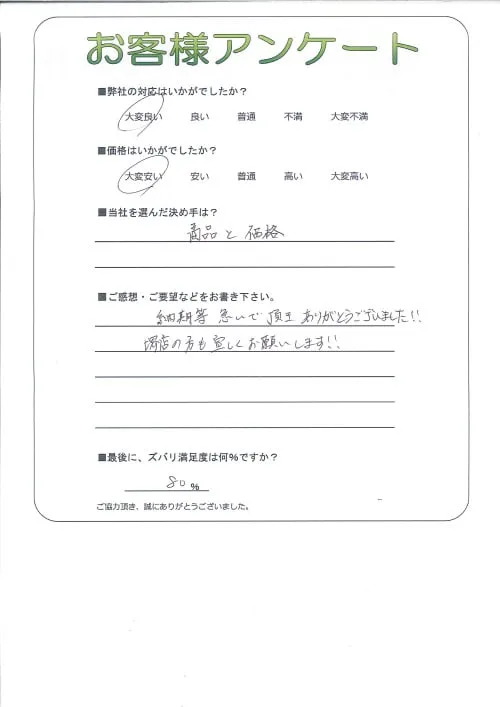 お客様アンケート
■弊社の対応はいかがでしたか?
大変良い 良い 普通 不満 大変不満
■価格はいかがでしたか?
大変安い 安い 普通 高い 大変高い
■当社を選んだ決め手は?
商品と価格
■ご感想・ご要望などをお書き下さい。
納期等 急いで頂き ありがとうございました!!
堺店の方も宜しくお願いします!!
■最後に、ズバリ満足度は何%ですか?
80%
ご協力頂き、誠にありがとうございました。